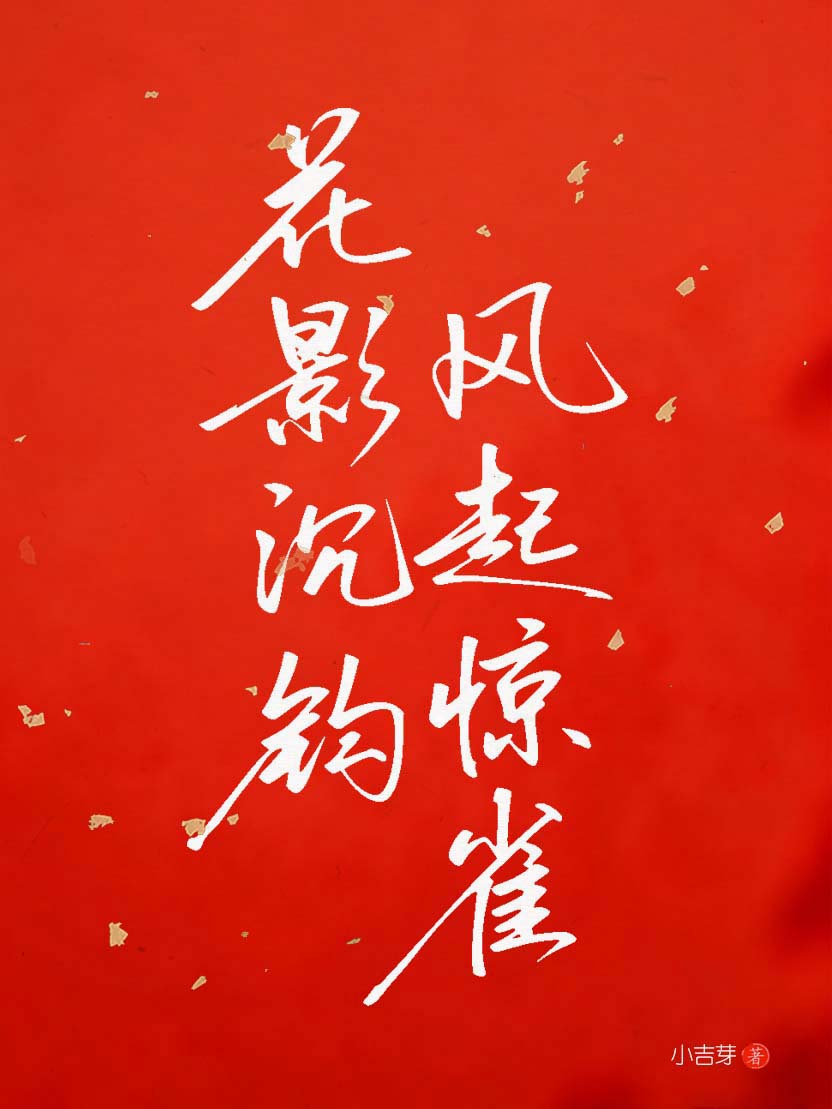 花影沉钧
风起惊雀
小吉芽 著